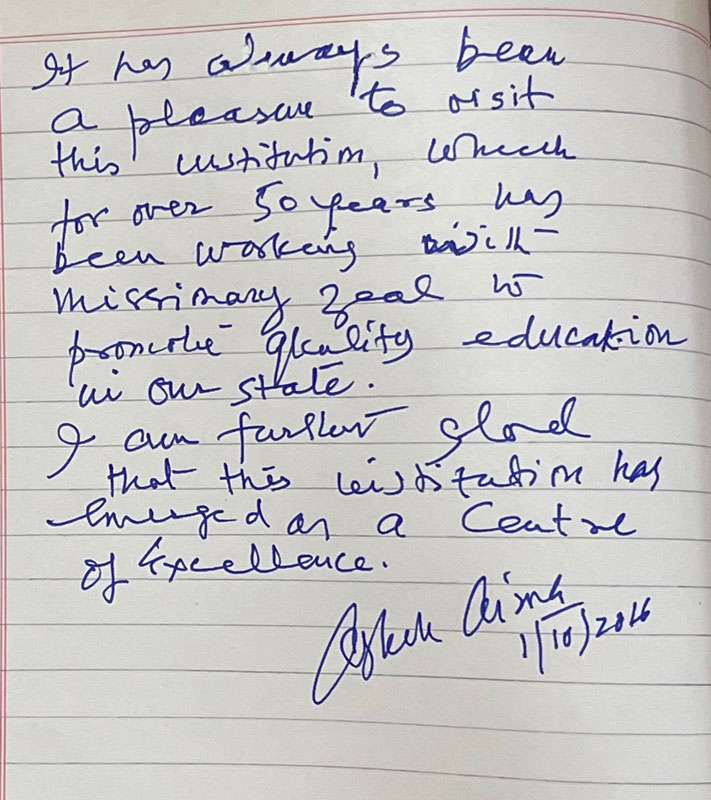 It has always been
a pleasure to visit
this institution, which
for over 50 years has
been working with
missionary zeal to
promote quality education
in our state.
I am further glad
that this institution has
emerged as a Centre
of Excellence.
Ashok Aima
1/10/2016